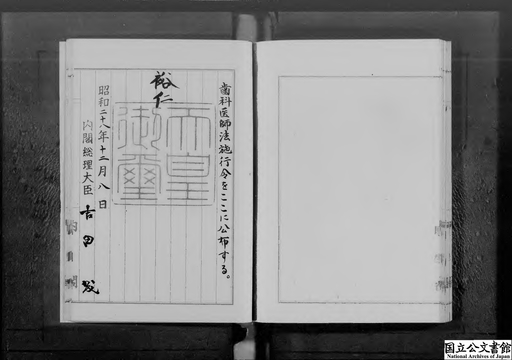 歯科医師法施行令をここに公布する。
裕仁
天皇御璽
昭和二十八年十二月八日
内閣総理大臣 吉田茂
国立公文書館
National Archives of Japan